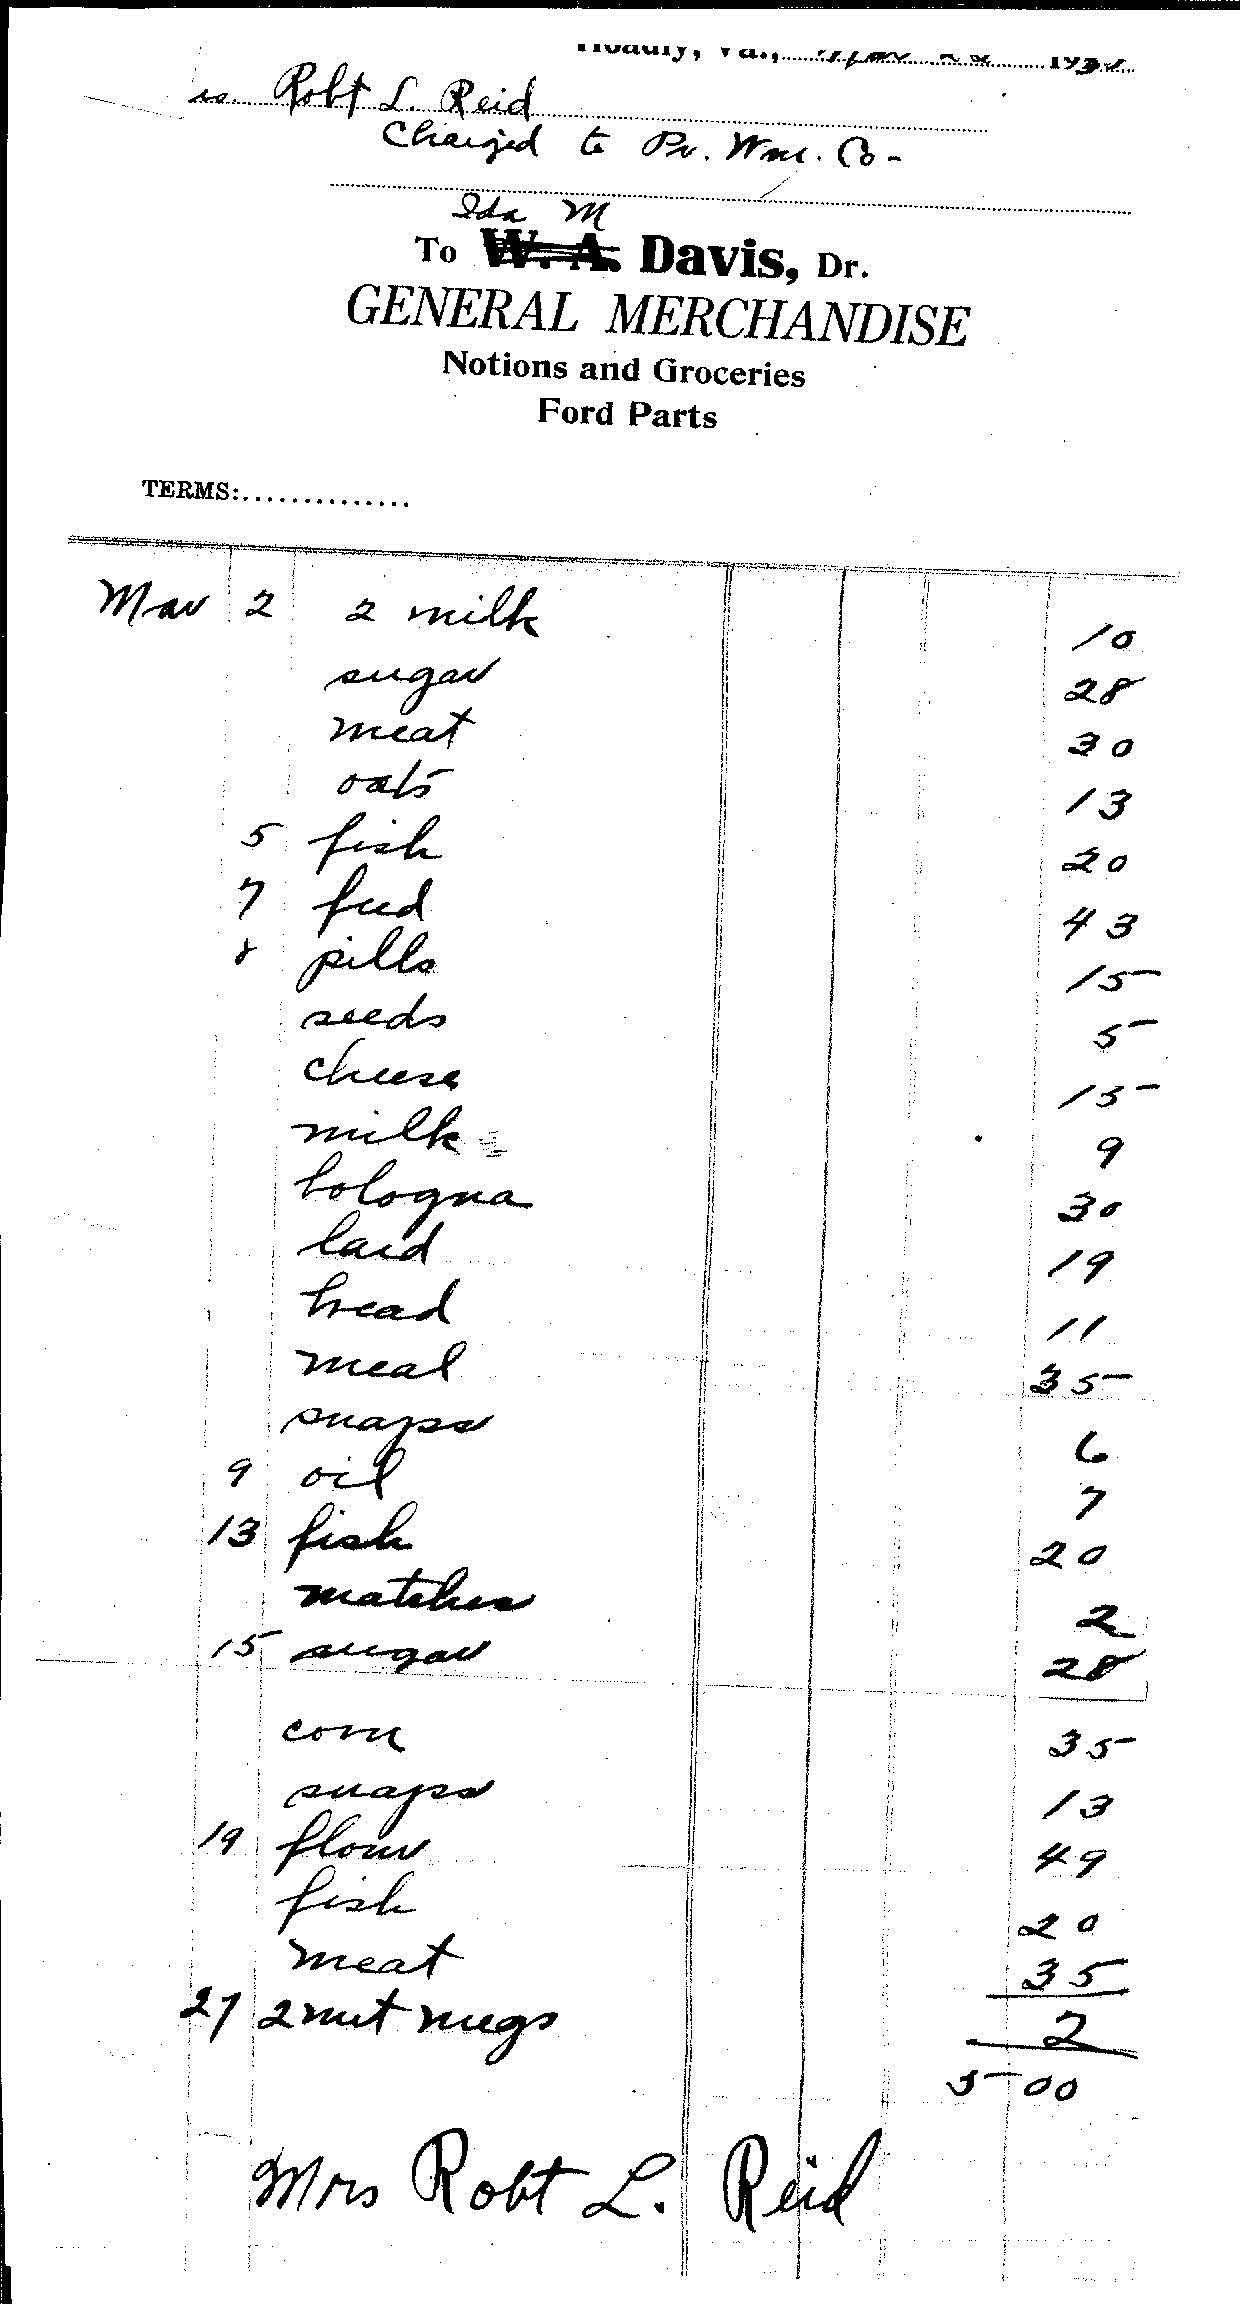 Hoadly, Va., Mar 193
Robt L. Reid
Charged to Pr. Wm. Co-
Ida M
To W. A. Davis, Dr.
GENERAL MERCHANDISE
Notions and Groceries
Ford Parts
TERMS:..............
Mar 2 2 milk 10
sugar 28
meat 30
oats 13
5 fish 20
7 feed 43
8 pills 15
seeds 5
cheese 15
milk 9
bologna 30
lard 19
bread 11
meal 35
snaps 6
9 oil 7
13 fish 20
matches 2
15 sugar 28
corn 35
snaps 13
19 flour 49
fish 20
meat 35
27 2 nut megs 2
5 00
Mrs Robt L. Reid